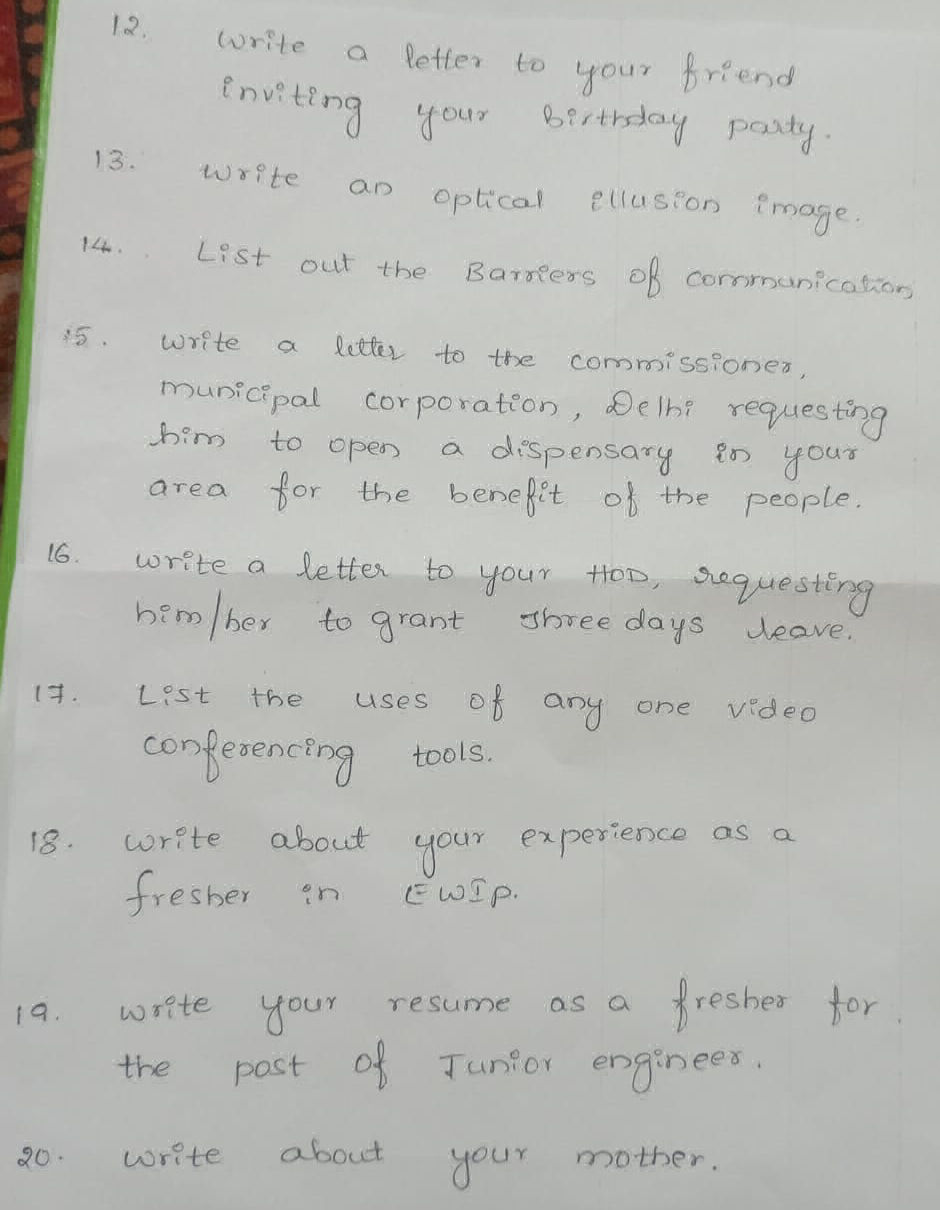 12. Write a letter to your friend
inviting your birthday party.
13. Write an optical illusion image.
14. List out the Barriers of communication
15. Write a letter to the commissioner,
municipal corporation, Delhi requesting
him to open a dispensary in your
area for the benefit of the people.
16. Write a letter to your HOD, requesting
him/her to grant Three days leave.
17. List the uses of any one video
conferencing tools.
18. Write about your experience as a
fresher in EWIP.
19. Write your resume as a fresher for
the post of Junior engineer.
20. Write about your mother.